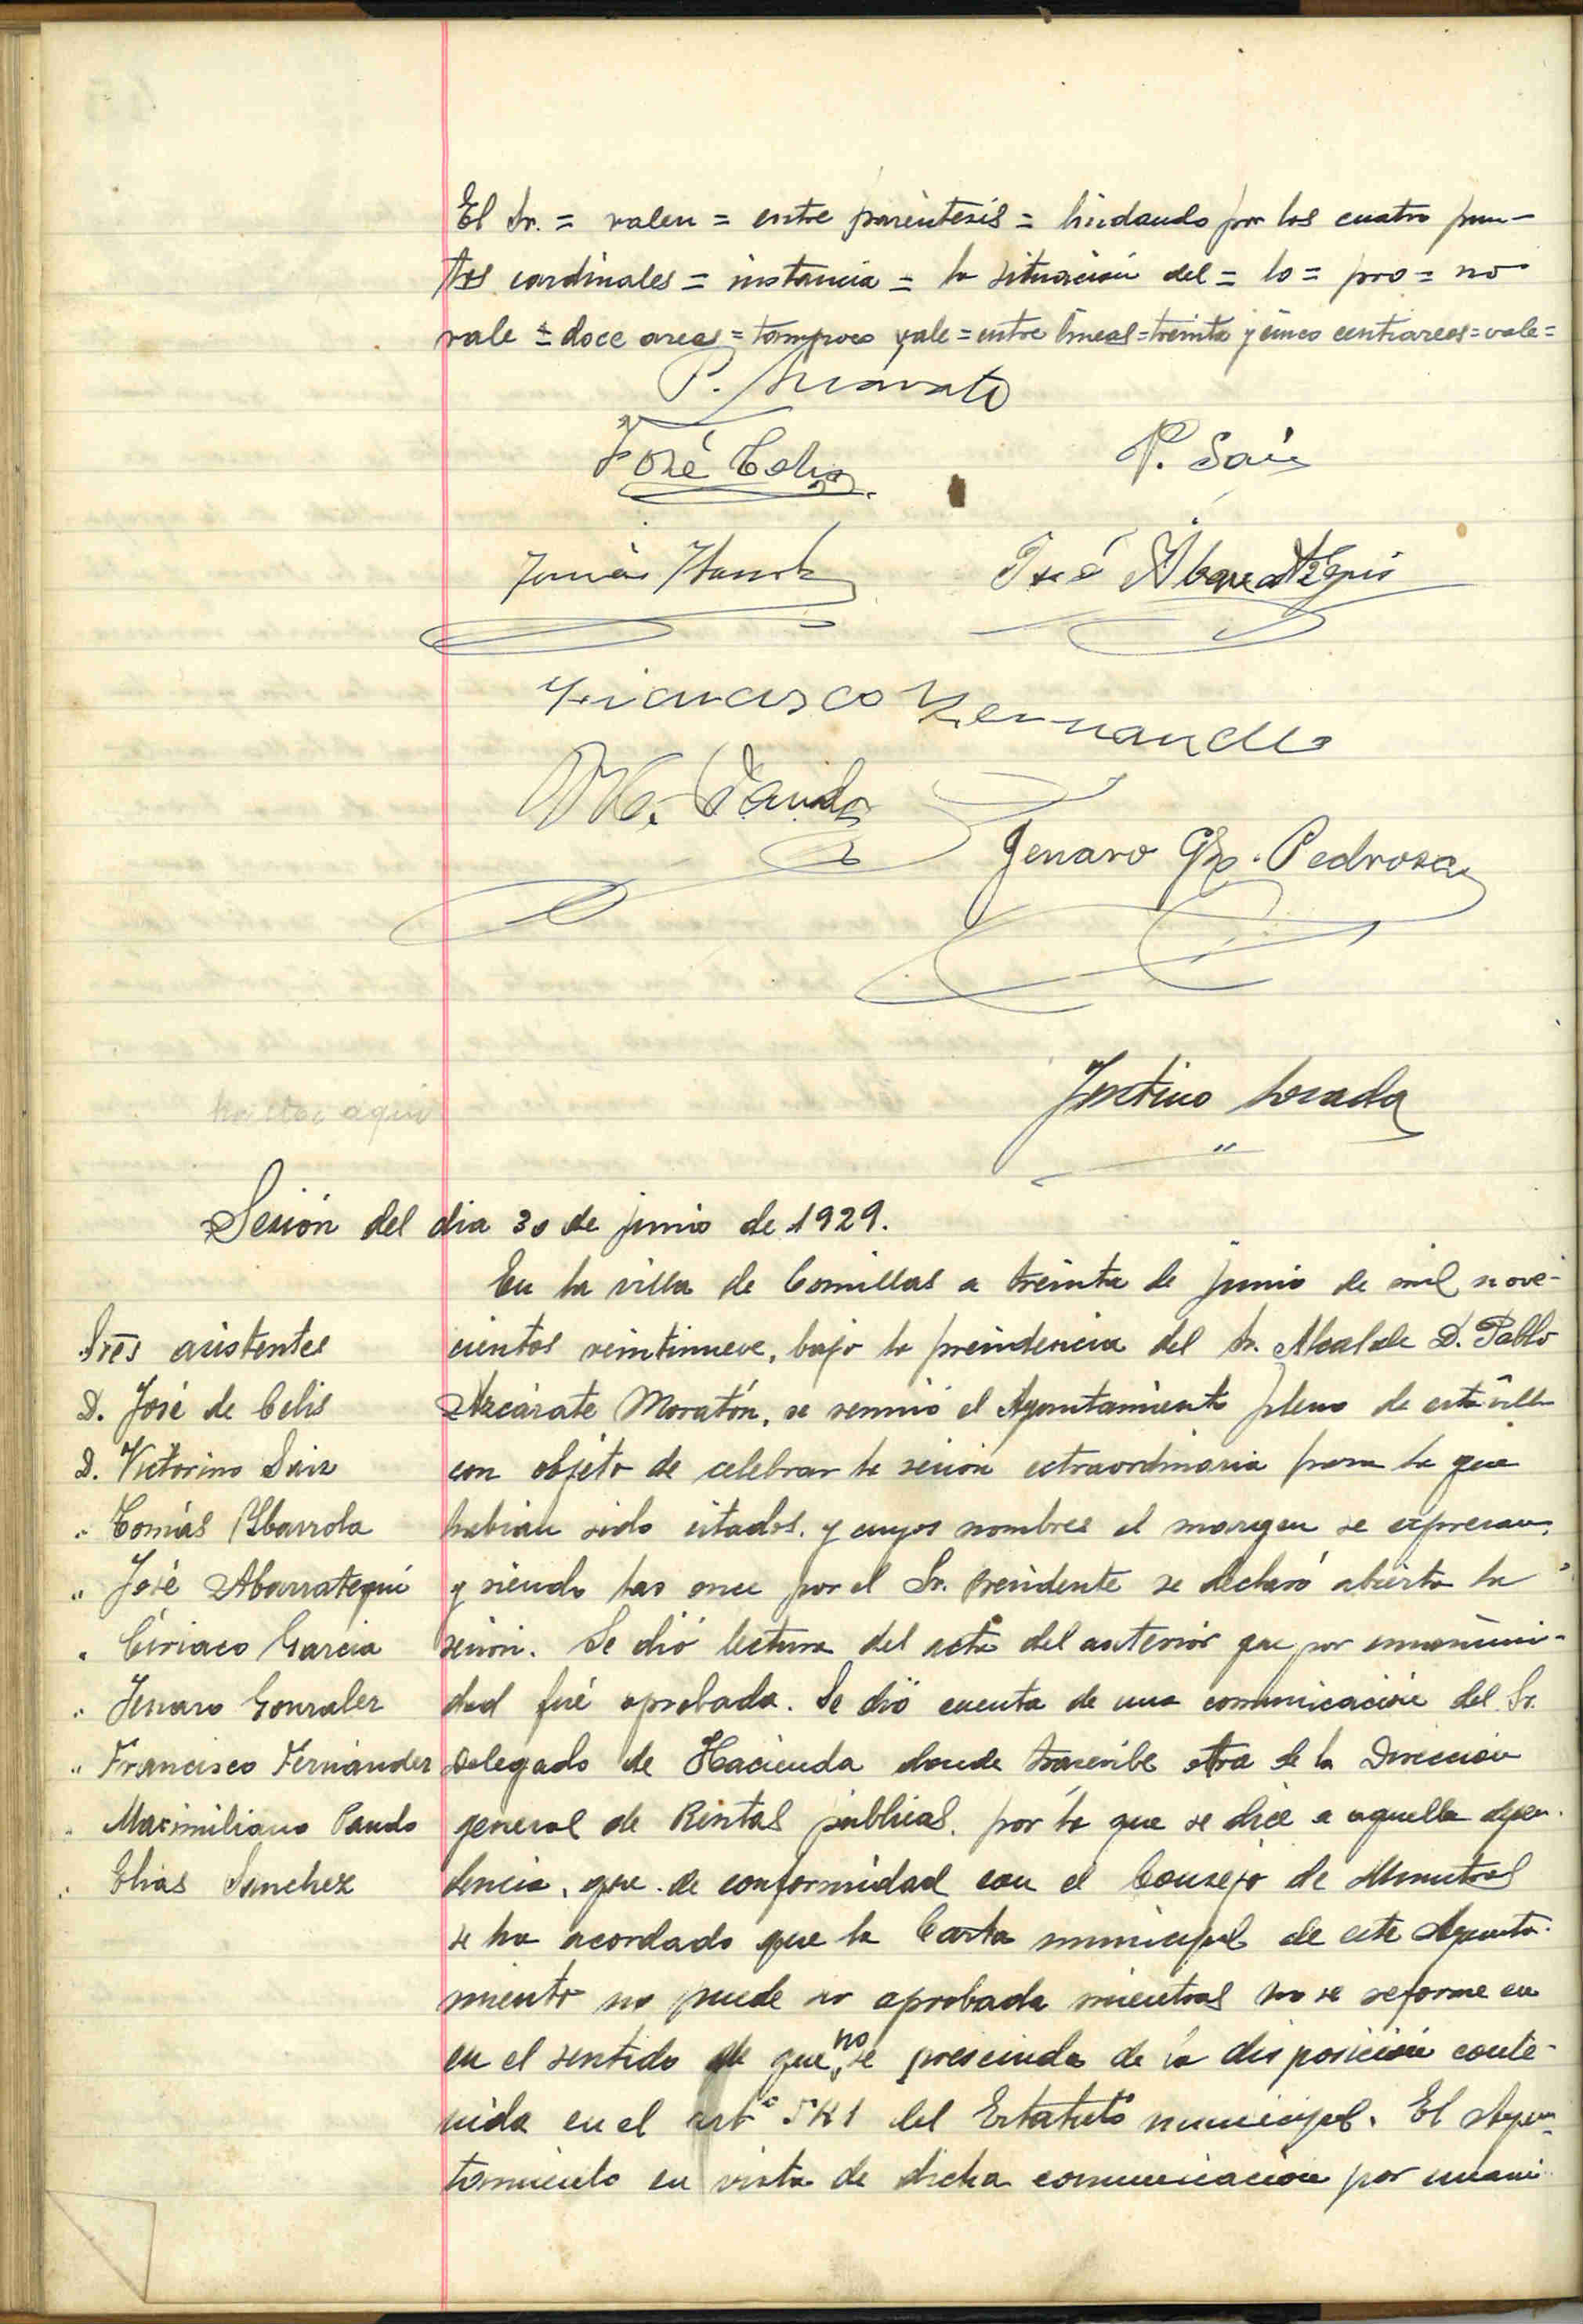 El Sr. = valen = entre paréntesis = lindando por los cuatro pun-
tos cardinales = instancia = la situación del = lo = pro = no
vale = doce areas = tampoco vale = entre lineas = treinta y cinco centiareas = vale =
José Celis
V. Saiz
José Abarrategui
Francisco Fernandez
M. Pando
Jenaro Gz. Pedrosa
Justino Losada
hasta aqui
Sesión del dia 30 de junio de 1929.
En la villa de Comillas a treinta de junio de mil nove-
Sres asistentes
cientos veintinueve, bajo la presidencia del Sr. Alcalde D. Pablo
D. José de Celis
Azcárate Moratón, se reunió el Ayuntamiento pleno de esta villa
D. Victorino Saiz
con objeto de celebrar la sesión extraordinaria para la que
" Tomás Ybarrola
habian sido citados, y cuyos nombres al margen se expresan,
" José Abarrategui
y siendo las once por el Sr. Presidente se declaró abierta la
" Ciriaco Garcia
sesión. Se dió lectura del acta del anterior que por unanimi-
" Jenaro Gonzalez
dad fué aprobada. Se dió cuenta de una comunicación del Sr.
" Francisco Fernández
Delegado de Hacienda donde trascribe otra de la Dirección
" Maximiliano Pando
general de Rentas públicas, por la que se dice a aquella depen-
" Elias Sanchez
dencia, que de conformidad con el Consejo de Ministros
se ha acordado que la Carta municipal de este Ayunta-
miento no puede ser aprobada mientras no se reforme en
en el sentido de que no se prescinda de la disposición conte-
nida en el artº del Estatuto municipal. El Ayun-
tamiento en vista de dicha comunicación por unani-